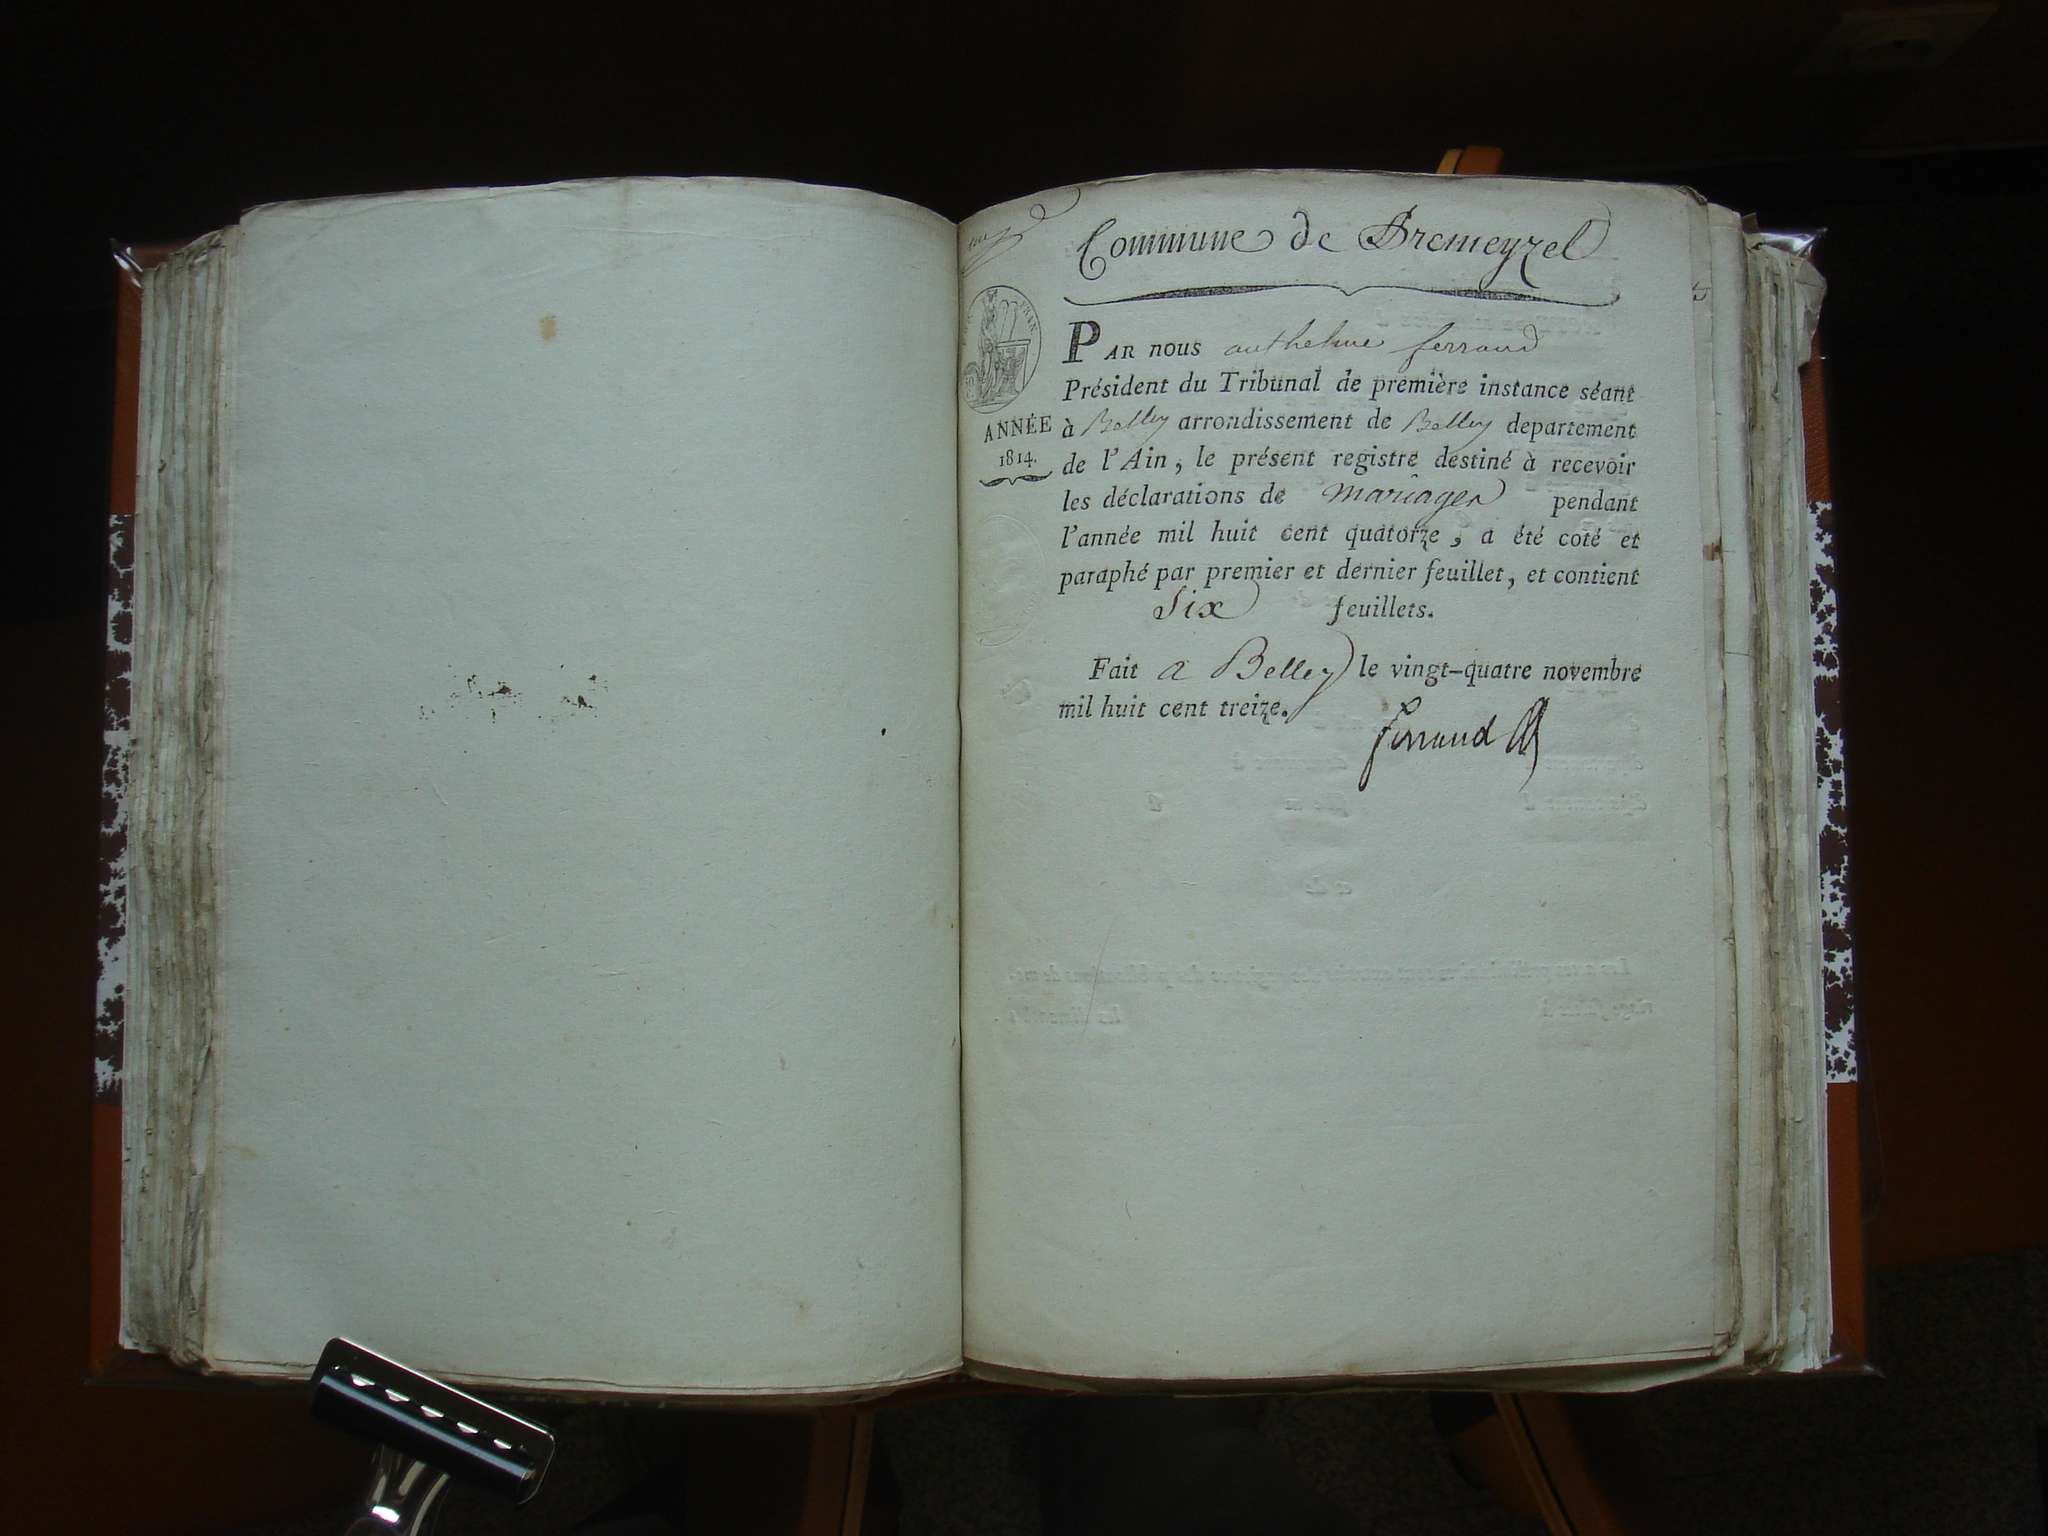 Commune de Premeyzel
PAR nous anthelme ferrand
Président du Tribunal de première instance séant
à Belley arrondissement de Belley departement
de l'Ain, le présent registre destiné à recevoir
les déclarations de mariages pendant
l'année mil huit cent quatorze, a été coté et
paraphé par premier et dernier feuillet, et contient
Six feuillets.
Fait a Belley le vingt-quatre novembre
mil huit cent treize.
ferrand
ANNÉE
1814.